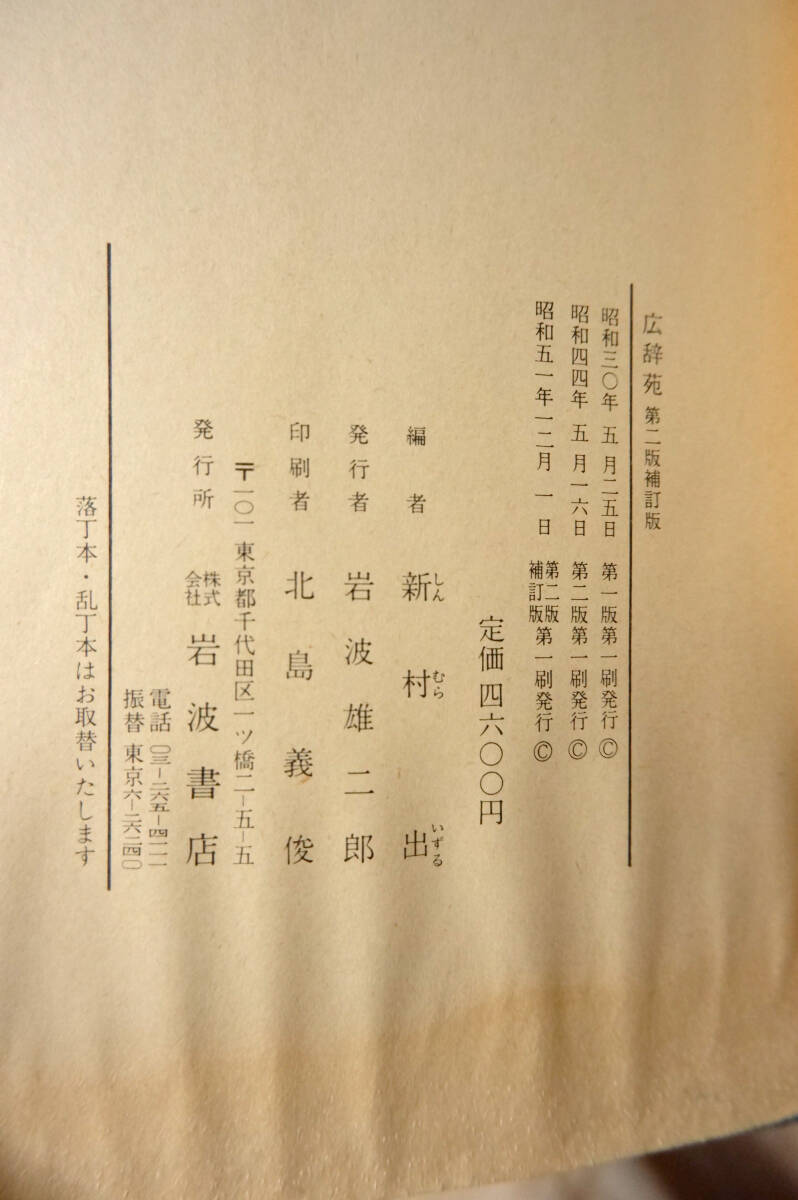 広辞苑 第二版補訂版
昭和三〇年 五 月二五日 第一版第一刷発行 ©
昭和四四年 五 月一六日 第二版第一刷発行 ©
昭和五一年一二月 一 日 第二版補訂版第一刷発行 ©
定価 四六〇〇円
編者 新村出
しん むら いずる
発行者 岩波雄二郎
印刷者 北島義俊
〒一〇一 東京都千代田区一ツ橋二-五-五
発行所 株式会社 岩波書店
電話 〇三-二六五-四一一一
振替 東京六-二六二四〇
落丁本・乱丁本はお取替いたします